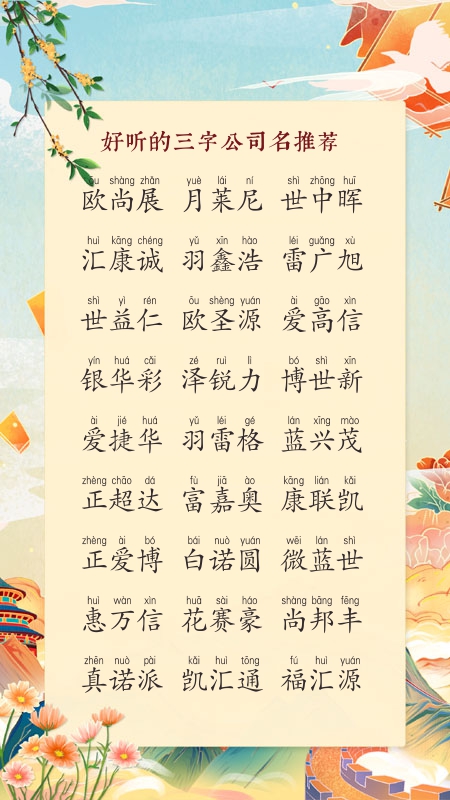 好听的三字公司名推荐
ōu shàng zhǎn yuè lái ní shì zhōng huī
欧尚展 月莱尼 世中晖
huì kāng chéng yǔ xīn hào léi guǎng xù
汇康诚 羽鑫浩 雷广旭
shì yì rén ōu shèng yuán ài gāo xìn
世益仁 欧圣源 爱高信
yín huá cǎi zé ruì lì bó shì xīn
银华彩 泽锐力 博世新
ài jié huá yǔ léi gé lán xīng mào
爱捷华 羽雷格 蓝兴茂
zhèng chāo dá fù jiā ào kāng lián kǎi
正超达 富嘉奥 康联凯
zhèng ài bó bái nuò yuán wēi lán shì
正爱博 白诺圆 微蓝世
huì wàn xìn huā sài háo shàng bāng fēng
惠万信 花赛豪 尚邦丰
zhēn nuò pài kǎi huì tōng fú huì yuán
真诺派 凯汇通 福汇源